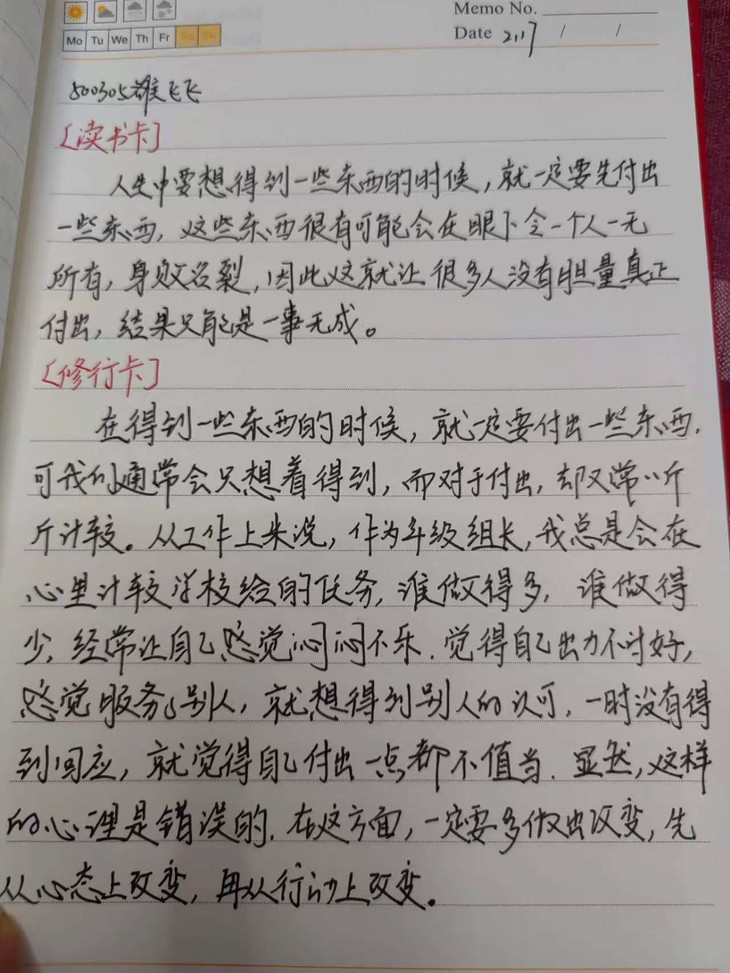 Memo No.
Mo Tu We Th Fr Sa Su
Date 2.17 / /
500305雄飞飞
[读书卡]
人生中要想得到一些东西的时候,就一定要先付出
一些东西,这些东西很有可能会在眼下令一个人一无
所有,身败名裂,因此这就让很多人没有胆量真正
付出,结果只能是一事无成。
[修行卡]
在得到一些东西的时候,就一定要付出一些东西.
可我们通常会只想着得到,而对于付出,却又常以斤
斤计较。从工作上来说,作为年级组长,我总是会在
心里计较学校给的任务,谁做得多,谁做得
少,经常让自己感觉闷闷不乐.觉得自己出力不讨好,
感觉服务了别人,就想得到别人的认可,一时没有得
到回应,就觉得自己付出一点都不值当.显然,这样
的心理是错误的.在这方面,一定要多做出改变,先
从心态上改变,再从行动上改变。